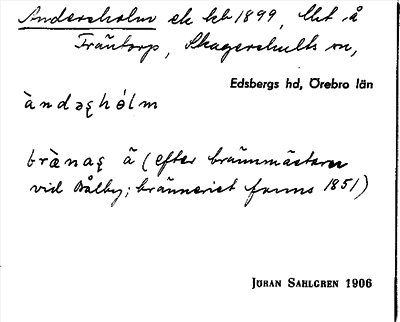 Andersholm ek kb 1899, lht å
Fräntorp, Skagershults sn,
Edsbergs hd, Örebro län
àndəꞩhólm
brä̀naꞩ ä (efter brännmästaren
vid Bålby; bränneriet fanns 1851)
JÖRAN SAHLGREN 1906